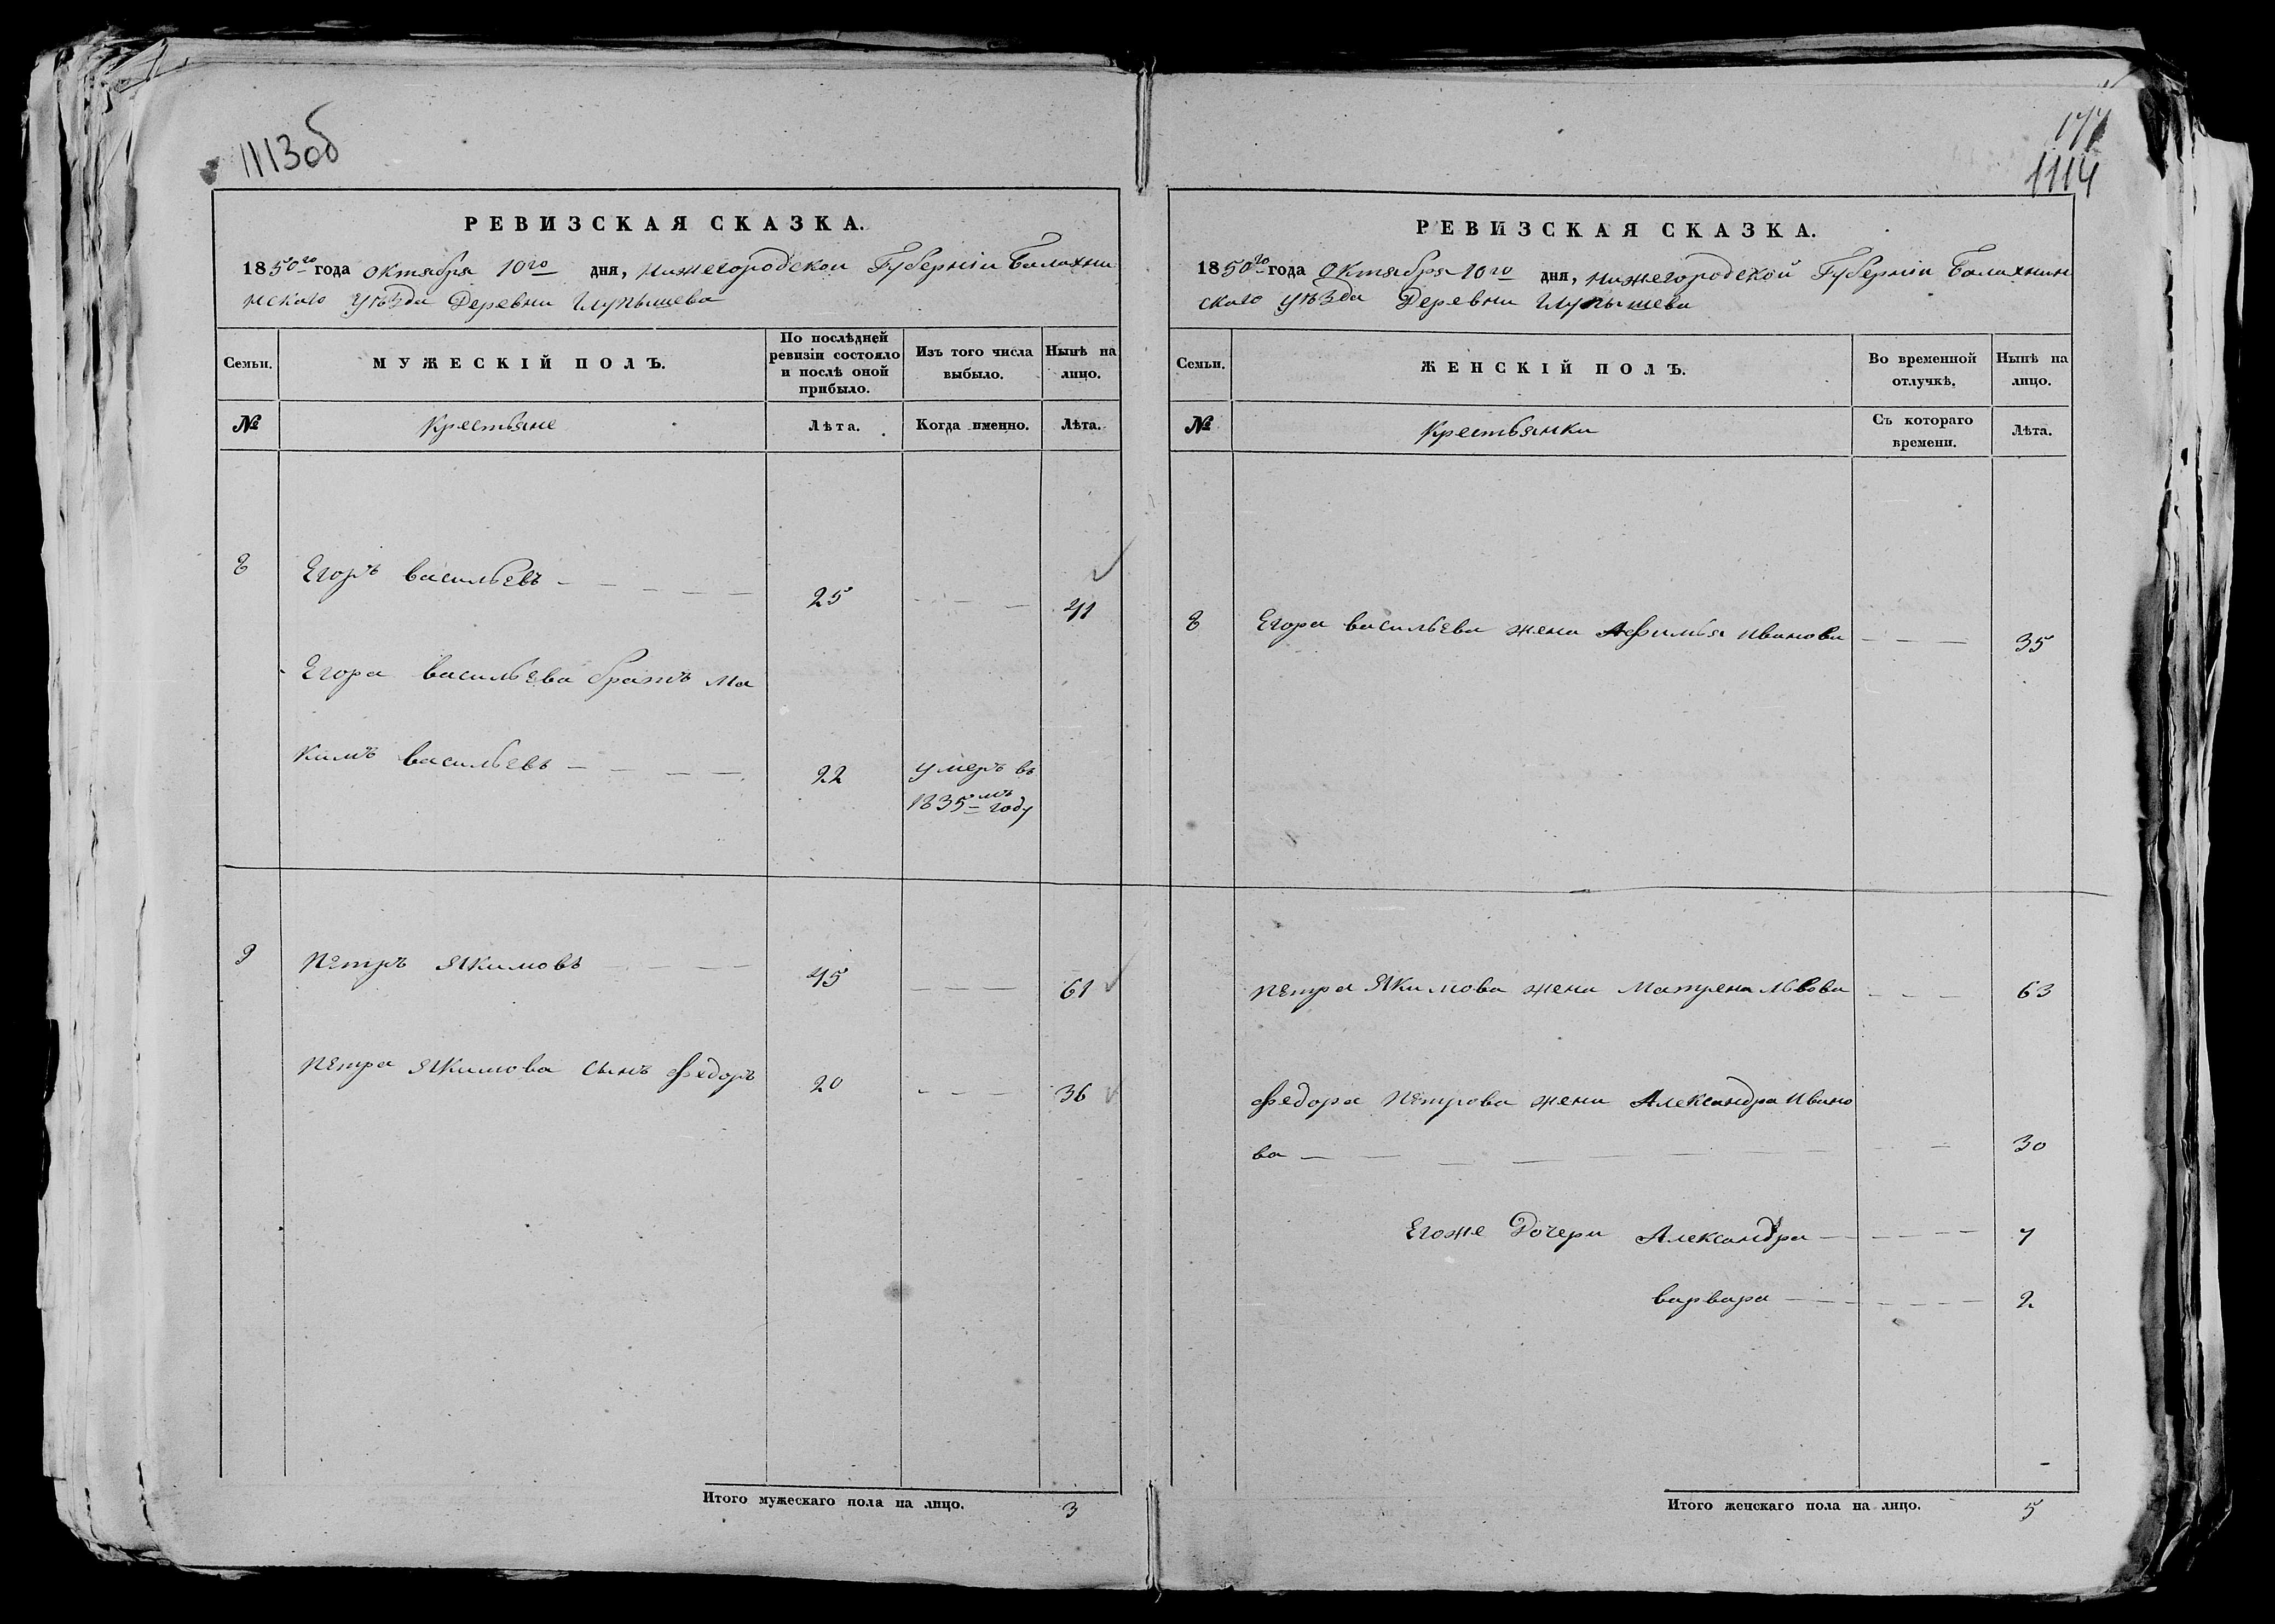 1113об
РЕВИЗСКАЯ СКАЗКА.
1850го года октября 10го дня, нижегородской Губерніи Балахни
нскаго уѣзда Деревни Шупышева
Семьи.
МУЖЕСКІЙ ПОЛЪ.
По послѣдней ревизіи состояло и послѣ оной прибыло.
Изъ того числа выбыло.
Нынѣ на лицо.
№
Крестьяне
Лѣта.
Когда именно.
Лѣта.
8 Егоръ васильевъ 25 41
Егора васильева братъ Ма
кимъ васильевъ 22 умеръ въ
1835мъ году
9 Петръ Якимовъ 45 61
Петра Якимова сынъ Федоръ 20 36
Итого мужескаго пола на лицо. 3
177
1114
РЕВИЗСКАЯ СКАЗКА.
1850го года Октября 10го дня, нижегородской Губерніи Балахнин
скаго уѣзда Деревни Шупышева
Семьи.
ЖЕНСКІЙ ПОЛЪ.
Во временной отлучкѣ.
Нынѣ на лицо.
№
Крестьянки
Съ котораго времени.
Лѣта.
8 Егора васильева жена Афимья иванова 35
Петра Якимова жена Матрена Львова 63
Федора Петрова жена Александра Ивано
ва 30
Егоже Дочери Александра 7
варвара 2
Итого женскаго пола на лицо. 5